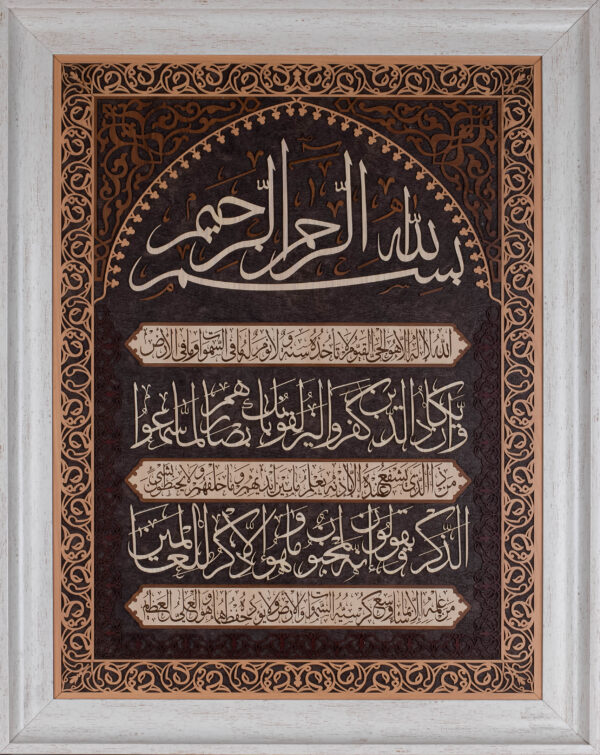 بسم الله الرحمن الرحيم
الله لا إله إلا هو الحي القيوم لا تأخذه سنة ولا نوم له ما في السموات وما في الأرض
وإن يكاد الذين كفروا ليزلقونك بأبصارهم لما سمعوا
من ذا الذي يشفع عنده إلا بإذنه يعلم ما بين أيديهم وما خلفهم ولا يحيطون بشيء
الذكر ويقولون إنه لمجنون وما هو إلا ذكر للعالمين
من علمه إلا بما شاء وسع كرسيه السموات والأرض ولا يؤده حفظهما وهو العلي العظيم